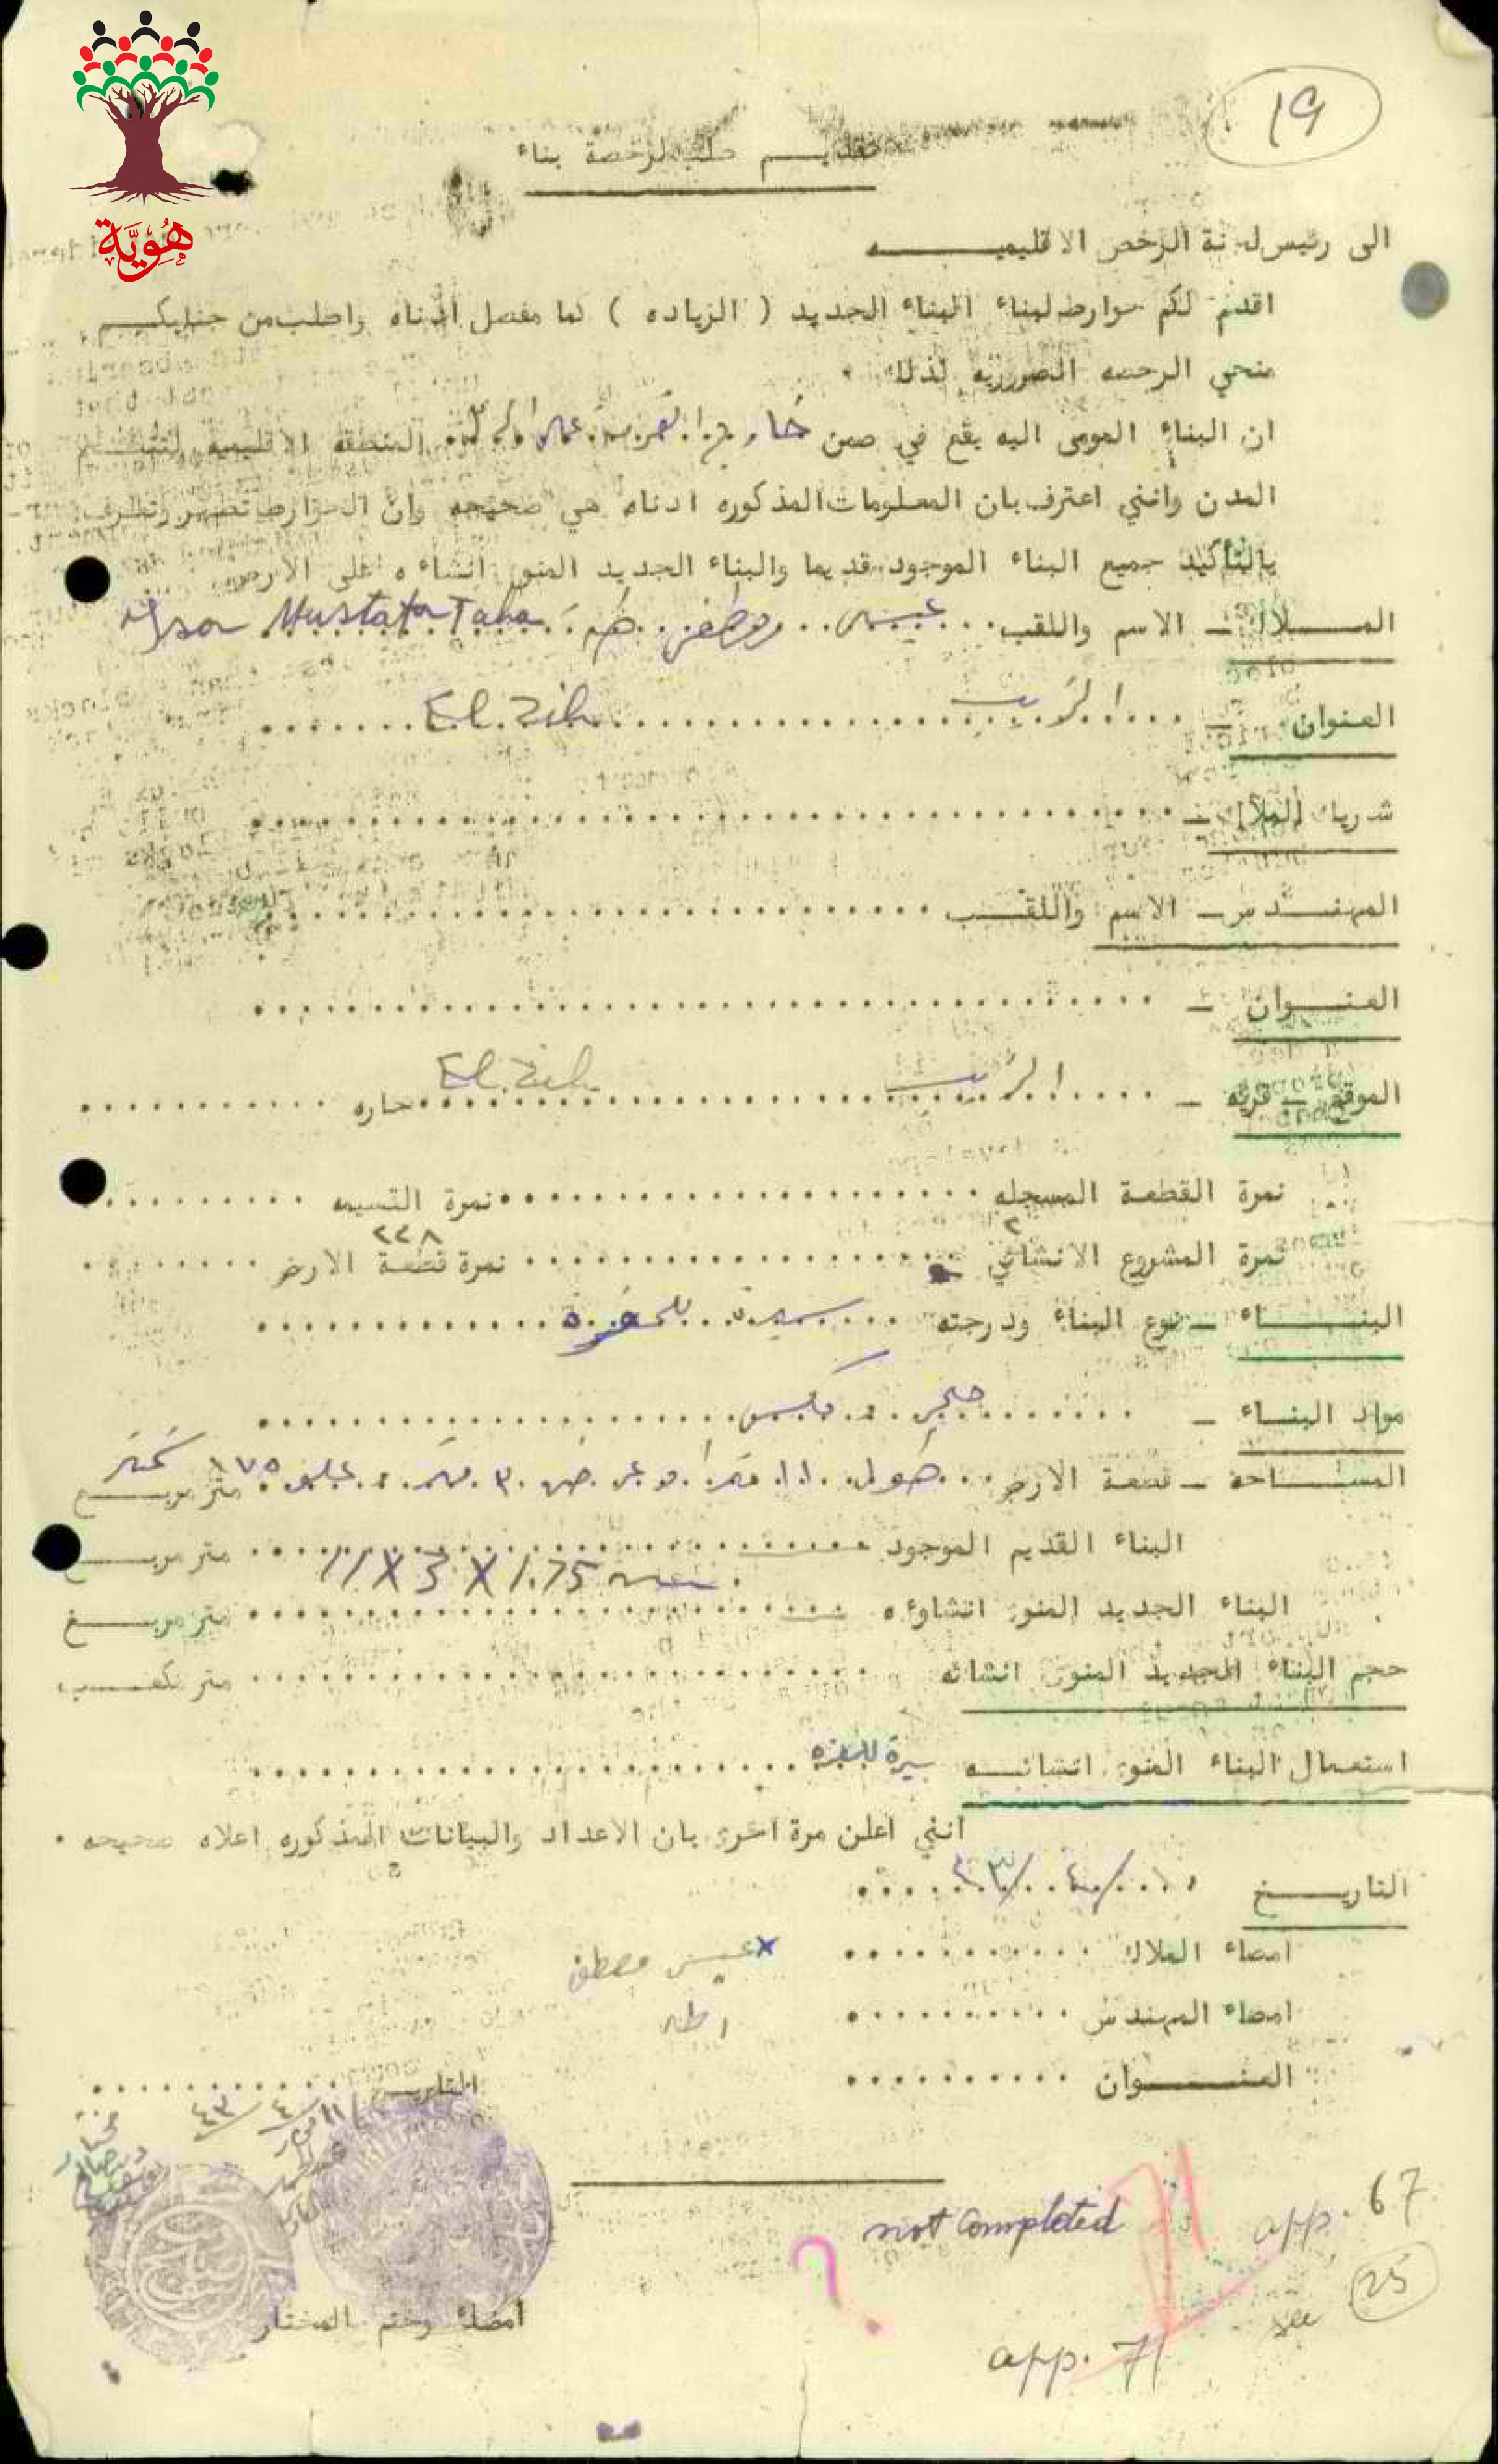 هُوِيَّة
19
تقديـــم طلب لرخصة بناء
الى رئيس لجنة الرخص الاقليميـــــه
اقدم لكم خوارط لبناء البناء الجديد ( الزياده ) كما مفصل ادناه واطلب من جنابكـــم
منحي الرخصه الضروريه لذلك .
ان البناء المومى اليه يقع في ضمن خارج القريه المنطقه الاقليميه لتنظـــم
المدن وانني اعترف بان المعلومات المذكوره ادناه هي صحيحه وان الخوارط تظهر وتعرف
بالتأكيد جميع البناء الموجود قديما والبناء الجديد المنوى انشاءه على الارض
المـــلاك – الاسم واللقب عيسى مصطفى طه Mustafa Taha
العنوان – الزيب El. Zib
شريك الملاك –
المهنـــدس – الاسم واللقـــب
العنـــوان –
الموقع – قريه – الزيب El. Zib حاره
نمرة القطعة المسجله نمرة القسيمه
نمرة المشروع الانشائي ٢ نمرة قطعة الارض ٢٢٨
البنـــاء – نوع البناء ودرجته سيرة
مواد البنـاء – حجر و
المســـاحة – قطعة الارض طول ١١ مترا وعرض ٣ متر وعلو ١٧٥ متر مربـــع
البناء القديم الموجود متر مربـــع
11 X 3 X 1.75
البناء الجديد المنوى انشاوءه متر مربـــع
حجم البناء الجديد المنوى انشائه متر مكعـــب
استعمال البناء المنوى انشائـــه سيرة
انني اعلن مرة اخرى بان الاعداد والبيانات المذكوره اعلاه صحيحه .
التاريـــخ ٤/ ٤٣
امضاء الملاك x عيسى مصطفى
امضاء المهندس طه
العنـــوان
التاريـــخ ١١/ ٤/ ٤٣
مختار
not Completed
app. 67
see 25
امضاء وختم المختار
app. 71